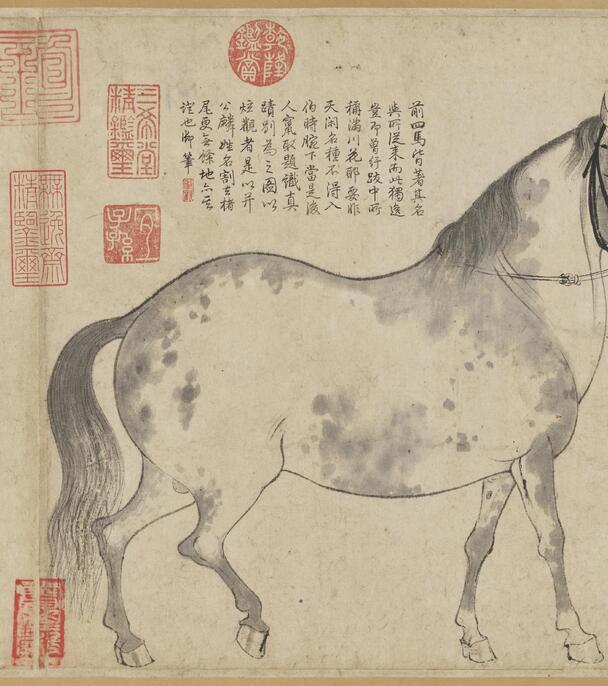 乾隆鑑賞
前四馬皆著其名
與所從來而此獨逸
豈即曾紆跋中所
稱滿川花耶要非
天閑名種不得入
伯時腕下當是後
人竄取題識真
蹟別為之圖以
炫觀者是以并
公麟姓名割去楮
尾更無餘地亦云
詫也御筆
三希堂精鑑璽
宜子孫
無逸齋精鑒璽